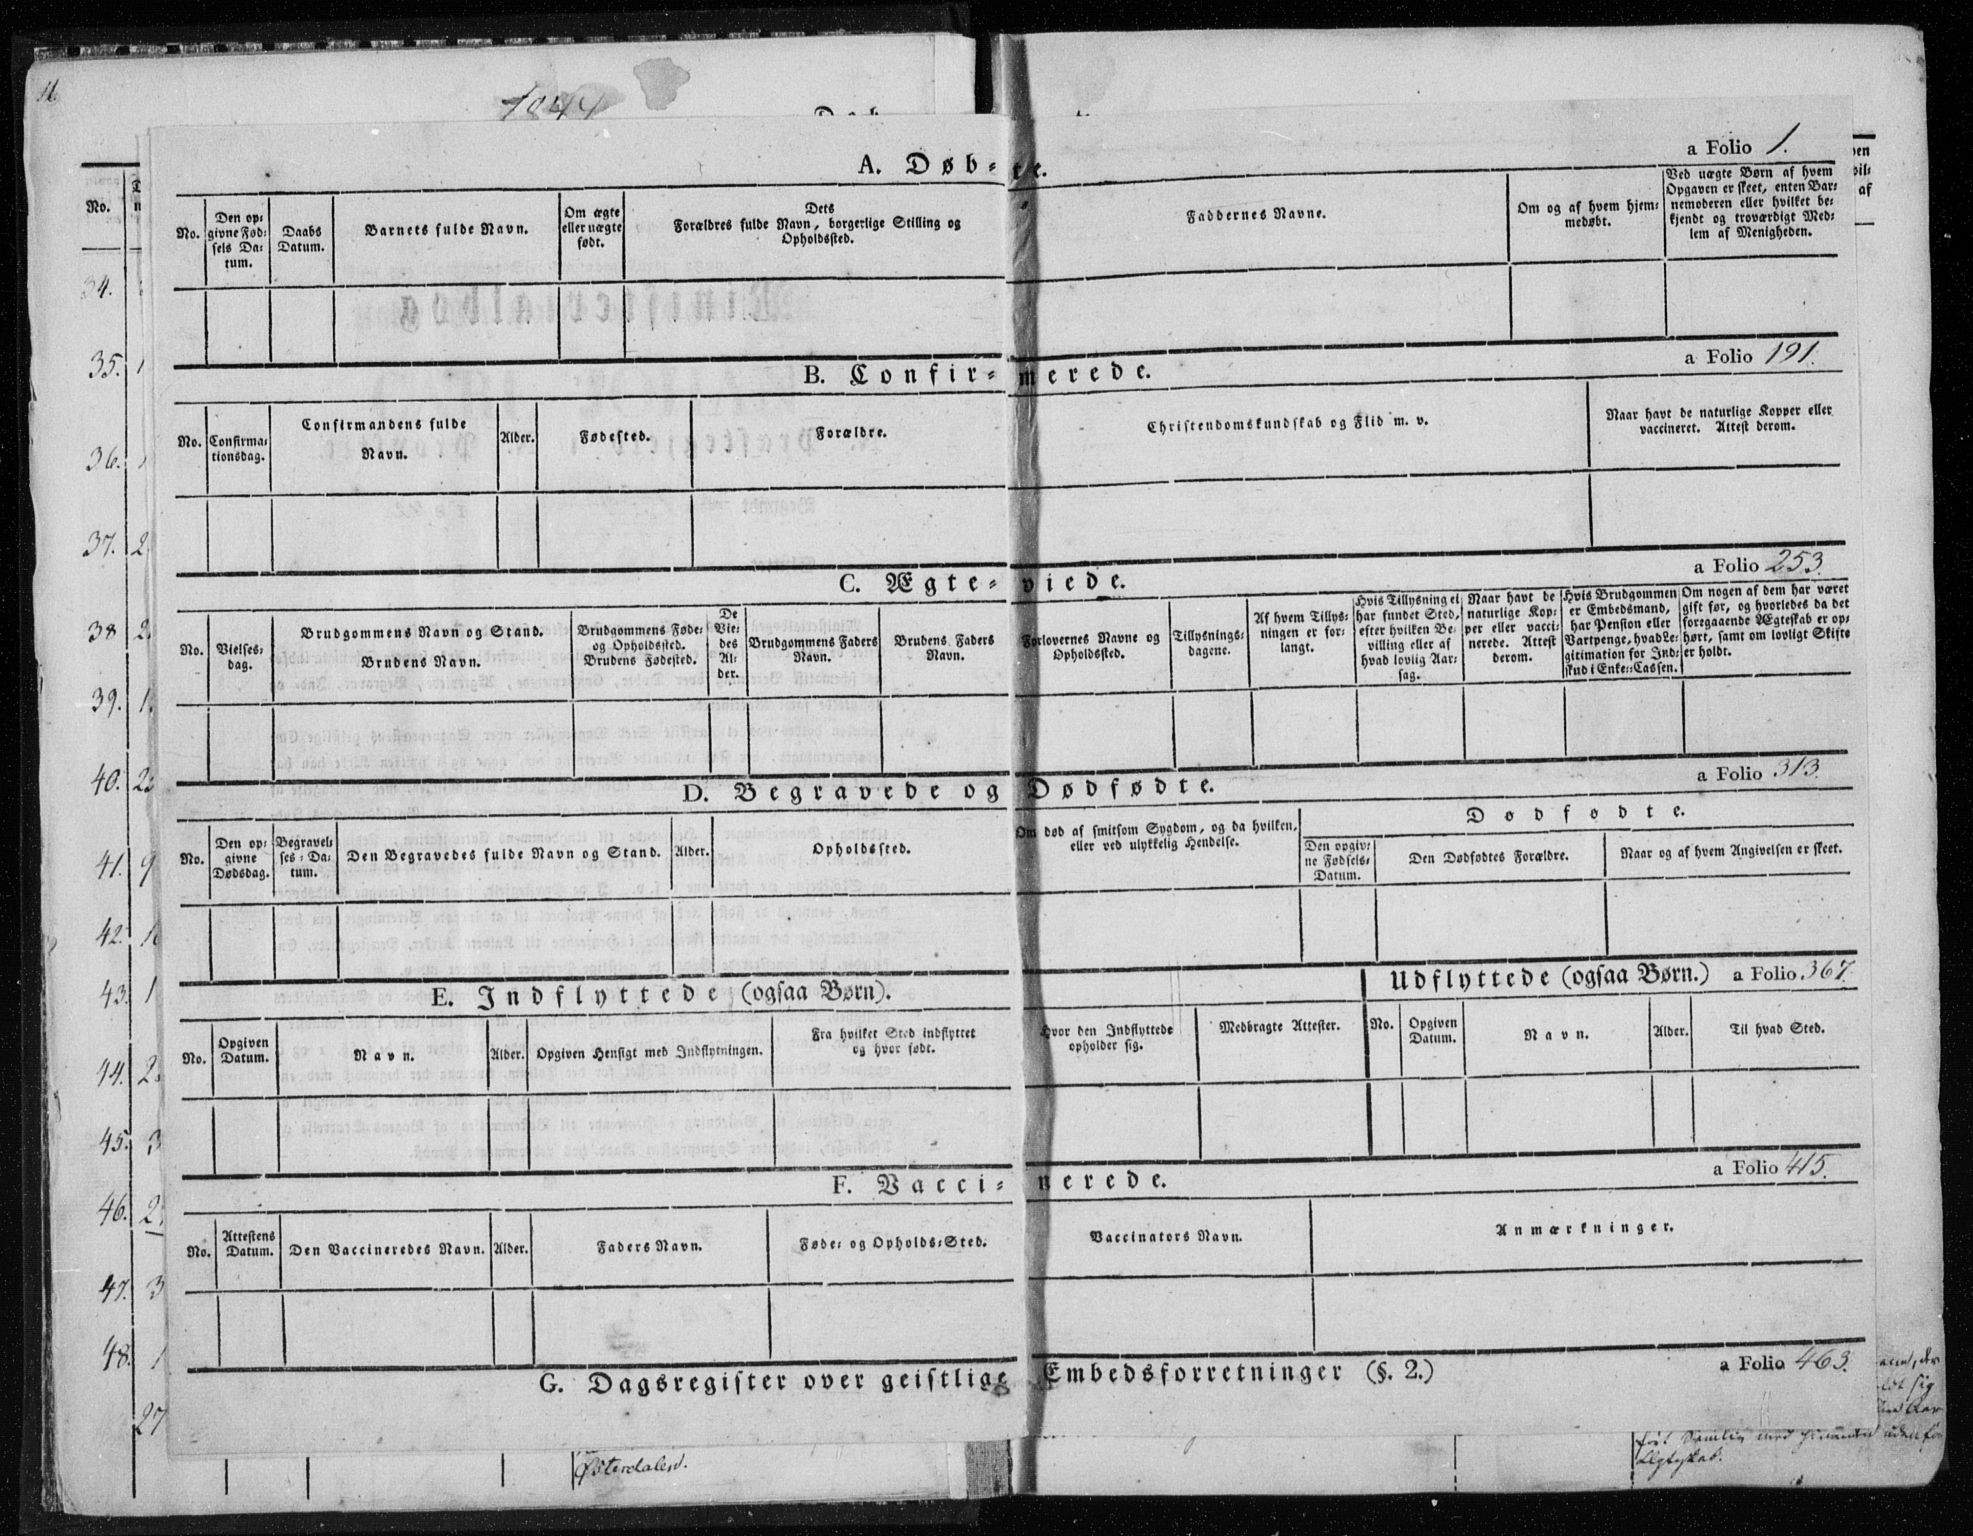 11.
1844
A. Døb-te.
a Folio 1.
No.
Den opgivne Fødsels Datum.
Daabs Datum.
Barnets fulde Navn.
Om ægte eller uægte født.
Dets Forældres fulde Navn, borgerlige Stilling og Opholdssted.
Faddernes Navne.
Om og af hvem hjemmedøbt.
Ved uægte Børn af hvem Opgaven er skeet, enten Barnemoderen eller hvilket bekjendt og troværdigt Medlem af Menigheden.
B. Confir-merede.
a Folio 191.
No.
Confirmationsdag.
Confirmandens fulde Navn.
Alder.
Fødested.
Forældre.
Christendomskundskab og Flid m. v.
Naar havt de naturlige Kopper eller vaccineret. Attest derom.
C. Ægte-viede.
a Folio 253
No.
Vielsesdag.
Brudgommens Navn og Stand.
Brudens Navn.
Brudgommens Føde- og Opholdssted.
Brudens Fødested.
De Viedes Alder.
Brudgommens Faders Navn.
Brudens Faders Navn.
Forlovernes Navne og Opholdssted.
Tillysningsdagene.
Af hvem Tillysningen er forlangt.
Hvis Tillysning ei har fundet Sted, efter hvilken Bevilling eller af hvad lovlig Aarsag.
Naar havt de naturlige Kopper eller vaccinerede. Attest derom.
Hvis Brudgommen er Embedsmand, har Pension eller Vartpenge, hvad Legitimation for Indskud i Enke-Cassen.
Om nogen af dem har været gift før, og hvorledes da det foregaaende Ægteskab er ophørt, samt om lovligt Skifte er holdt.
D. Begravede og Dødfødte.
a Folio 313.
No.
Den opgivne Dødsdag.
Begravelses-Datum.
Den Begravedes fulde Navn og Stand.
Alder.
Opholdssted.
Om død af smitsom Sygdom, og da hvilken, eller ved ulykkelig Hendelse.
Dødfødte.
Den opgivne Fødsels-Datum.
Den Dødfødtes Forældre.
Naar og af hvem Angivelsen er skeet.
E. Indflyttede (ogsaa Børn).
Udflyttede (ogsaa Børn.) a Folio 367.
No.
Opgiven Datum.
Navn.
Alder.
Opgiven Hensigt med Indflytningen.
Fra hvilket Sted indflyttet og hvor født.
Hvor den Indflyttede opholder sig.
Medbragte Attester.
No.
Opgiven Datum.
Navn.
Alder.
Til hvad Sted.
F. Vacci-nerede.
a Folio 415.
No.
Attestens Datum.
Den Vaccineredes Navn.
Alder.
Faders Navn.
Føde- og Opholds-Sted.
Vaccinators Navn.
Anmærkninger.
G. Dagsregister over geistlige Embedsforretninger (§. 2.)
a Folio 463.
No.
34.
35.
36.
37.
38
39.
40.
41.
42.
43.
44.
45.
46.
47.
48.
27
Østerdalen.